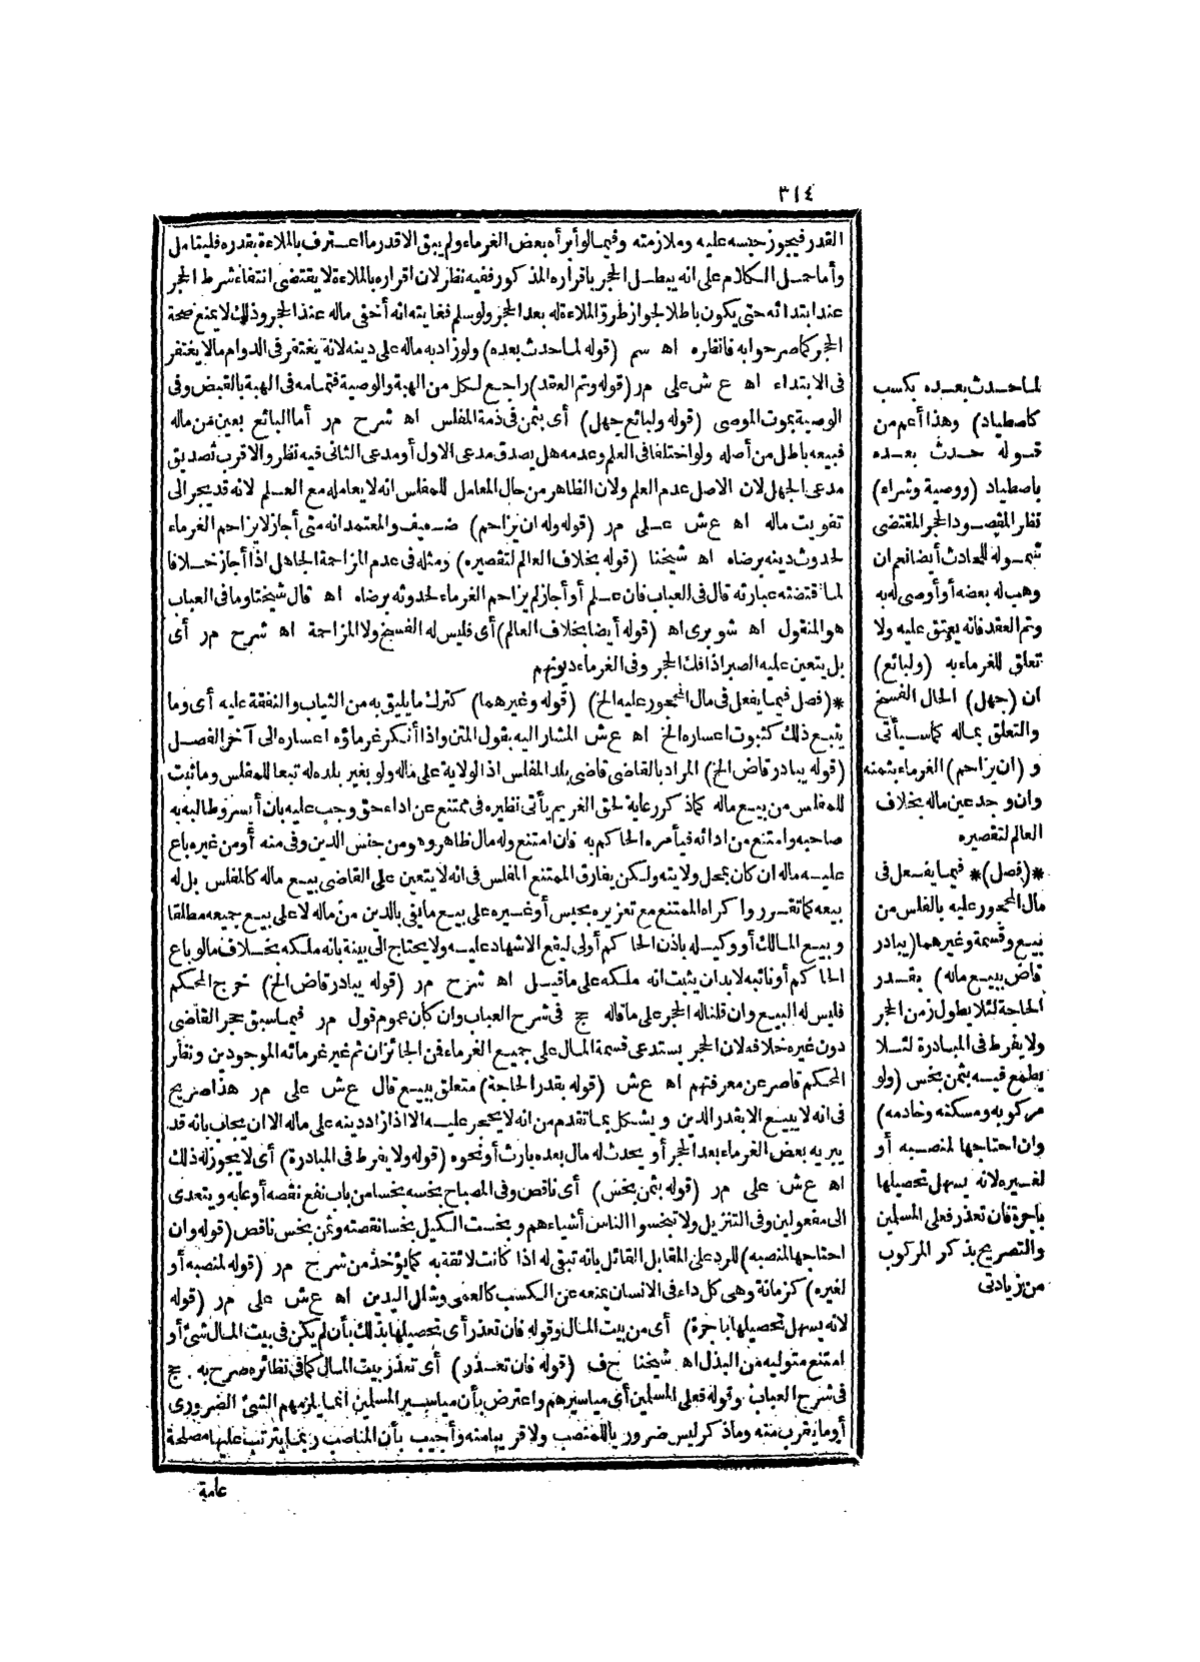 ٣١٤
القدر فيجوز حبسه عليه وملازمته وفيما لو أبرأه بعض الغرماء ولم يبق الا قدر ما اعترف بالملاءة بقدره فليتأمل
وأما حمل الكلام على انه يبطل الحجر باقراره المذكور ففيه نظر لان اقراره بالملاءة لا يقتضى انتفاء شرط الحجر
عند ابتدائه حتى يكون باطلا لجواز طرو الملاءة له بعد الحجر ولو سلم فغايته انه أخفى ماله عند الحجر وذلك لا يمنع صحة
الحجر كما صرحوا به فانظره اه سم (قوله لما حدث بعده) ولو زاد به ماله على دينه لانه يغتفر فى الدوام ما لا يغتفر
فى الابتداء اه ع ش على م ر (قوله وتم العقد) راجع لكل من الهبة والوصية فتمامه فى الهبة بالقبض وفى
الوصية بموت الموصى (قوله ولبائع جهل) أى بثمن فى ذمة المفلس اه شرح م ر أما البائع بعين من ماله
فبيعه باطل من أصله ولو اختلفا فى العلم وعدمه هل يصدق مدعى الاول أو مدعى الثانى فيه نظر والاقرب تصديق
مدعى الجهل لان الاصل عدم العلم ولان الظاهر من حال المعامل للمفلس انه لا يعامله مع العلم لانه قد يجر الى
تفويت ماله اه ع ش على م ر (قوله وله ان يزاحم) ضعيف والمعتمد انه متى أجاز لا يزاحم الغرماء
لحدوث دينه برضاه اه شيخنا (قوله بخلاف العالم لتقصيره) ومثله فى عدم المزاحمة الجاهل اذا أجاز خلافا
لما اقتضته عبارته قال فى العباب فان علم أو أجاز لم يزاحم الغرماء لحدوثه برضاه اه قال شيخنا وما فى العباب
هو المنقول اه شوبرى اه (قوله أيضا بخلاف العالم) أى فليس له الفسخ ولا المزاحمة اه شرح م ر أى
بل يتعين عليه الصبر اذا فك الحجر وفى الغرماء ديونهم
*(فصل فيما يفعل فى مال المحجور عليه الخ) (قوله وغيرهما) كترك ما يليق به من الثياب والنفقة عليه أى وما
يتبع ذلك كثبوت اعساره الخ اه ع ش المشار اليه بقول المتن واذا أنكر غرماؤه اعساره الى آخر الفصل
(قوله يبادر قاض الخ) المراد بالقاضى قاضى بلد المفلس اذ الولاية على ماله ولو بغير بلده له تبعا للمفلس وما ثبت
للمفلس من بيع ماله كما ذكر رعاية لحق الغريم يأتى نظيره فى ممتنع عن اداء حق وجب عليه بان أيسر وطالبه به
صاحبه وامتنع من ادائه فيأمره الحاكم به فان امتنع وله مال ظاهر وهو من جنس الدين وفى منه أو من غيره باع
عليه ماله ان كان بمحل ولايته ولكن يفارق الممتنع المفلس فى انه لا يتعين على القاضى بيع ماله كالمفلس بل له
بيعه كما تقرر واكراه الممتنع مع تعزيره بحبس أو غيره على بيع ما يفى بالدين من ماله لا على بيع جميعه مطلقا
وبيع المالك أو وكيله باذن الحاكم أولى ليقع الاشهاد عليه ولا يحتاج الى بينة بانه ملكه بخلاف ما لو باع
الحاكم أو نائبه لا بد ان يثبت انه ملكه على ما قيل اه شرح م ر (قوله يبادر قاض الخ) خرج المحكم
فليس له البيع وان قلنا له الحجر على ما قاله حج فى شرح العباب وان كان عموم قول م ر فيما سبق حجر القاضى
دون غيره خلافه لان الحجر يستدعى قسمة المال على جميع الغرماء فمن الجائز ان ثم غير غرمائه الموجودين ونظر
المحكم قاصر عن معرفتهم اه ع ش (قوله بقدر الحاجة) متعلق ببيع قال ع ش على م ر هذا صريح
فى انه لا يبيع الا بقدر الدين ويشكل بما تقدم من انه لا يحجر عليه الا اذا زاد دينه على ماله الا ان يجاب بانه قد
يبريه بعض الغرماء بعد الحجر أو يحدث له مال بعده بارث أو نحوه (قوله ولا يفرط فى المبادرة) أى لا يجوز له ذلك
اه ع ش على م ر (قوله بثمن بخس) أى ناقص وفى المصباح بخسه بخسا من باب نفع نقصه أو عابه ويتعدى
الى مفعولين وفى التنزيل ولا تبخسوا الناس أشياءهم وبخست الكيل بخسا نقصته وثمن بخس ناقص (قوله وان
احتاجها لمنصبه) للرد على المقابل القائل بانه تبقى له اذا كانت لائقة به كما يؤخذ من شرح م ر (قوله لمنصبه أو
لغيره) كزمانة وهى كل داء فى الانسان يمنعه عن الكسب كالعمى وشلل اليدين اه ع ش على م ر (قوله
لانه يسهل تحصيلها باجرة) أى من بيت المال وقوله فان تعذر أى تحصيلها بذلك بأن لم يكن فى بيت المال شئ أو
امتنع متوليه من البذل اه شيخنا ح ف (قوله فان تعذر) أى تعذر بيت المال كما فى نظائره صرح به حج
فى شرح العباب وقوله فعلى المسلمين أى مياسيرهم واعترض بأن مياسير المسلمين انما يلزمهم الشئ الضرورى
أو ما يقرب منه وما ذكر ليس ضروريا للمنصب ولا قريبا منه وأجيب بأن المناصب ربما يترتب عليها مصلحة
عامة
لما حدث بعده بكسب
كاصطياد) وهذا أعم من
قوله حدث بعده
باصطياد (ووصية وشراء)
نظر المقصود الحجر المقتضى
شموله للحادث أيضا نعم ان
وهب له بعضه أو أوصى له به
وتم العقد فانه يعتق عليه ولا
تعلق للغرماء به (ولبائع)
ان (جهل) الحال الفسخ
والتعلق بماله كما سيأتى
و (ان يزاحم) الغرماء بثمنه
وان وجد عين ماله بخلاف
العالم لتقصيره
*(فصل)* فيما يفعل فى
مال المحجور عليه بالفلس من
بيع وقسمة وغيرهما (يبادر
قاض ببيع ماله) بقدر
الحاجة لئلا يطول زمن الحجر
ولا يفرط فى المبادرة لئلا
يطمع فيه بثمن بخس (ولو
مركوبه ومسكنه وخادمه)
وان احتاجها لمنصبه أو
لغيره لانه يسهل تحصيلها
باجرة فان تعذر فعلى المسلمين
والتصريح بذكر المركوب
من زيادتى